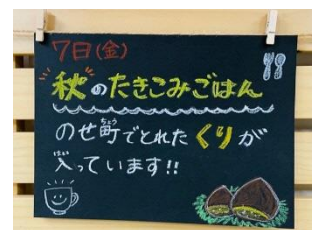 7日(金)
秋のたきこみごはん
のせ町でとれたくりが
入っています!!